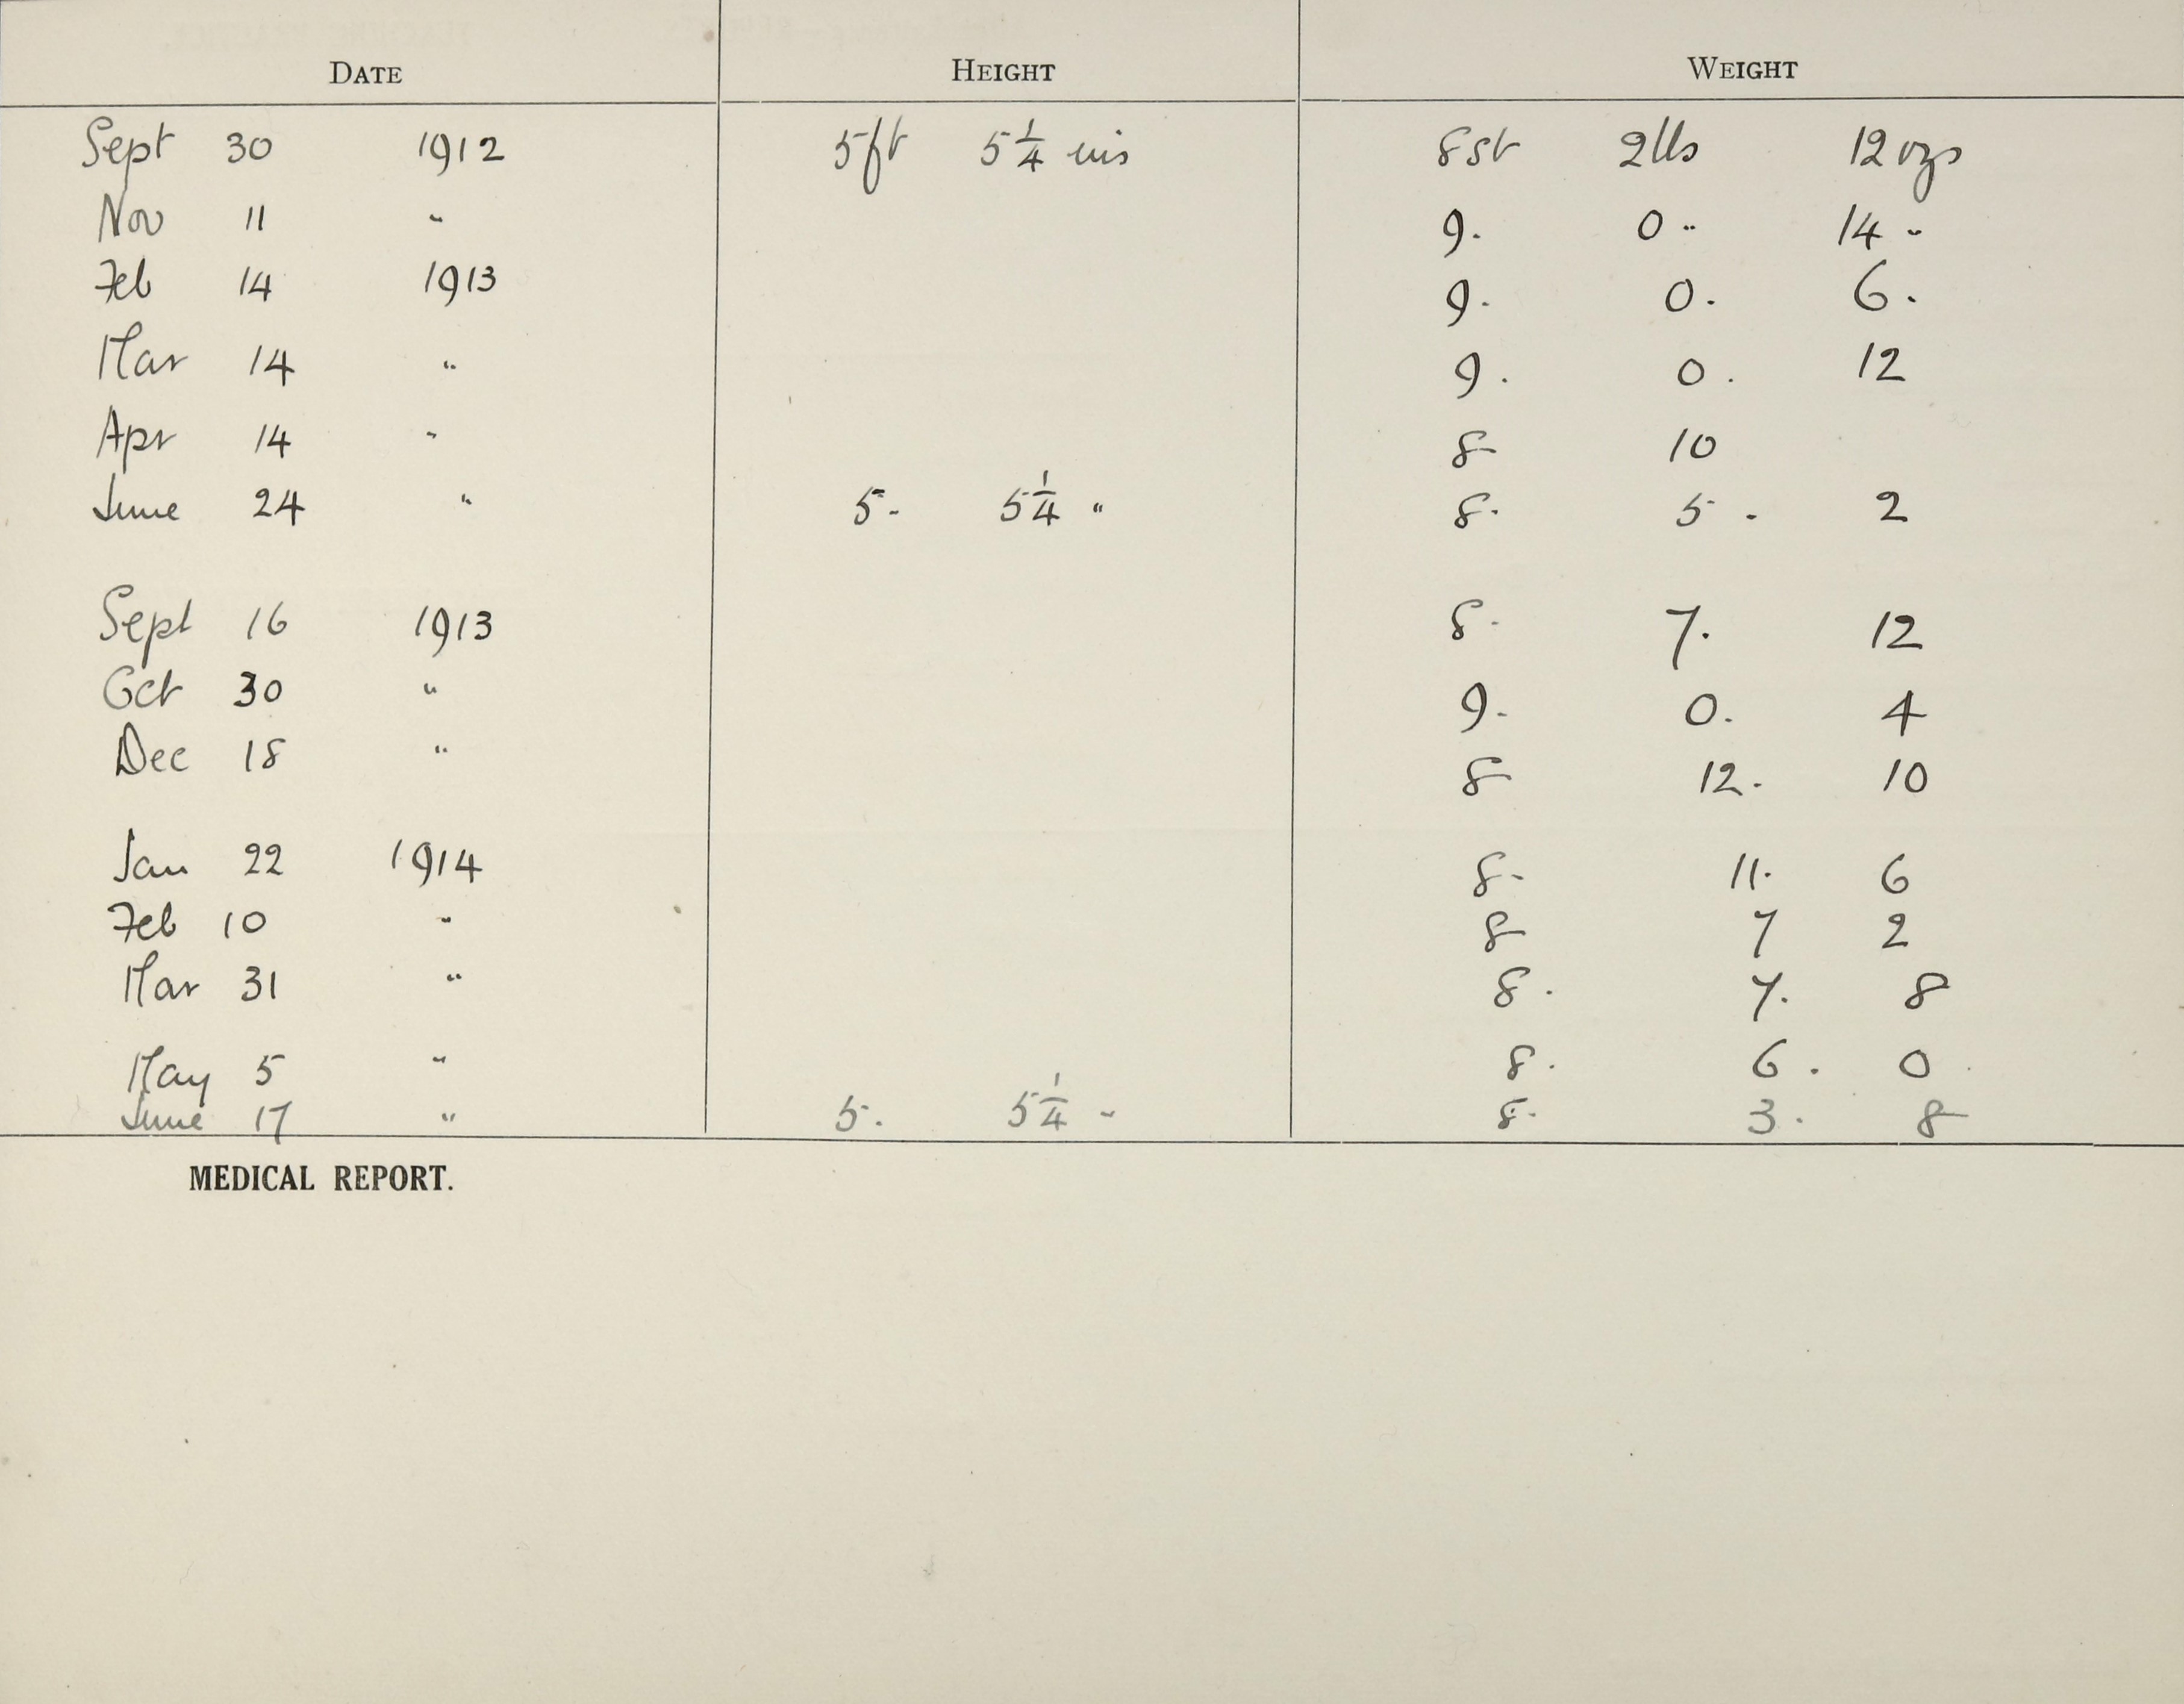 DATE HEIGHT WEIGHT
Sept 30 1912 5ft 5 1/4 ins 8st 2lbs 12ozs
Nov 11 " 9. 0 " 14 "
Feb 14 1913 9. 0. 6.
Mar 14 " 9. 0. 12
Apr 14 " 8 10
June 24 " 5 " 5 1/4 " 8. 5. 2
Sept 16 1913 8. 7. 12
Oct 30 " 9. 0. 4
Dec 18 " 8 12. 10
Jan 22 1914 8. 11. 6
Feb 10 " 8 7 2
Mar 31 " 8. 7. 8
May 5 " 8. 6. 0
June 17 " 5. 5 1/4 " 8. 3. 8
MEDICAL REPORT.